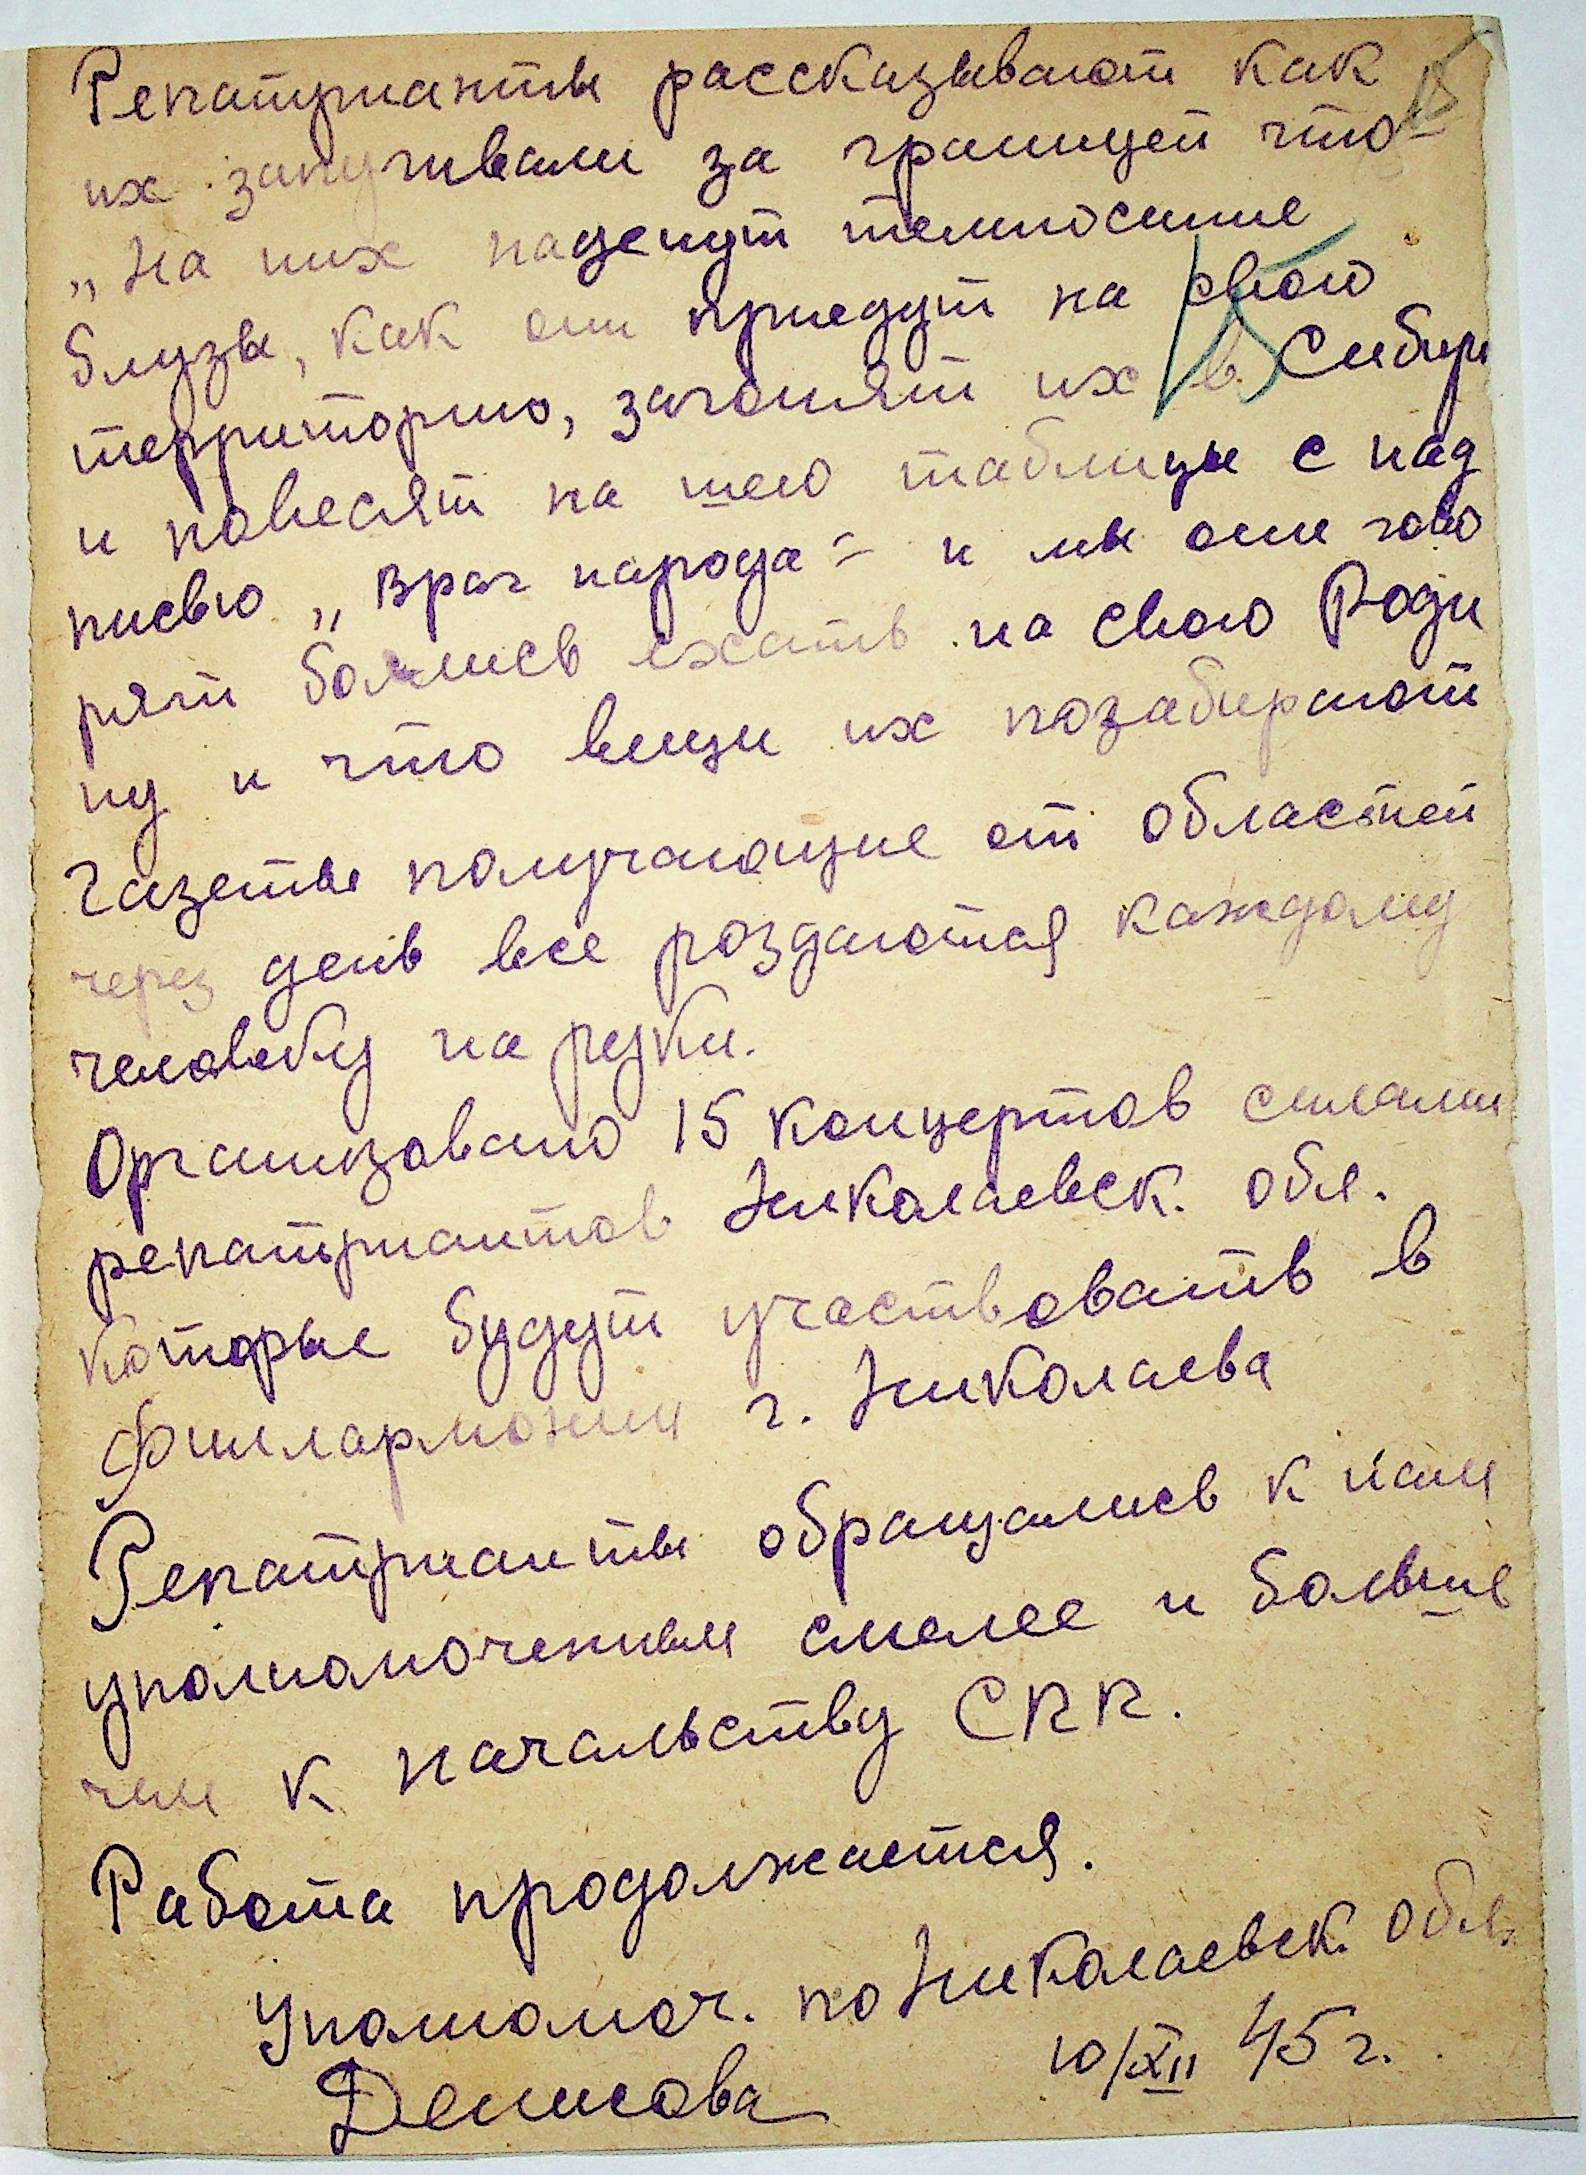 Репатрианты рассказывают как
их запугивали за границей что-
„На них наденут темносиние
блузы, как они приедут на свою
территорию, загонят их в Сибирь
и повесят на шею таблицы с над
писью „враг народа“ - и мы они гово
рят боялись ехать на свою Роди
ну и что вещи их позабирают
Газеты получающие от областей
через день все роздаются каждому
человеку на руки.
Организовано 15 концертов силами
репатриантов Николаевск. обл.
которые будут участвовать в
Филлармонии г. Николаева
Репатрианты обращались к нам
уполномоченным смелее и больше
чем к начальству СПП.
Работа продолжается.
Уполномоч. по Николаевск. обл.
10/XII 45 г.
Денисова